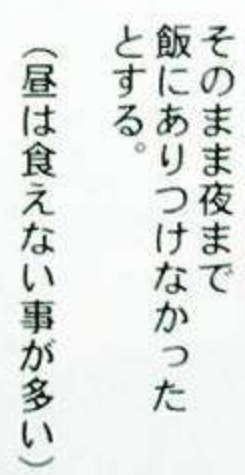 そのまま夜まで
飯にありつけなかった
とする。
（昼は食えない事が多い）